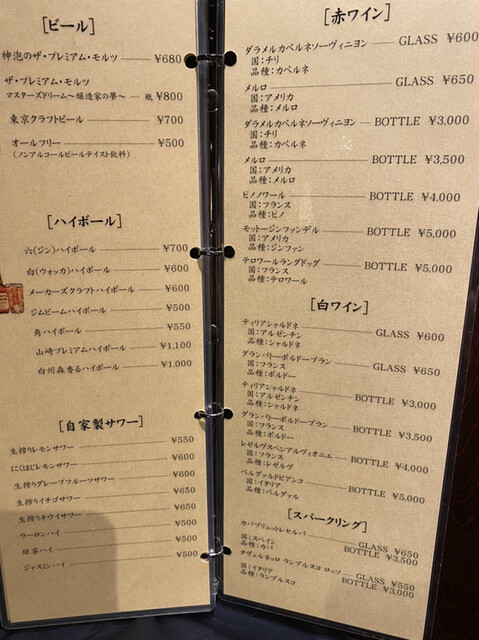 [ビール]
神泡のザ・プレミアム・モルツ ¥680
ザ・プレミアム・モルツ
マスターズドリーム〜醸造家の夢〜 瓶 ¥800
東京クラフトビール ¥700
オールフリー ¥500
(ノンアルコールビールテイスト飲料)
[ハイボール]
六(ジン)ハイボール ¥700
白(ウォッカ)ハイボール ¥600
メーカーズクラフトハイボール ¥600
ジムビームハイボール ¥500
角ハイボール ¥550
山崎プレミアムハイボール ¥1,100
白州森香るハイボール ¥1,000
[自家製サワー]
生搾りレモンサワー ¥550
にくはじレモンサワー ¥600
生搾りグレープフルーツサワー ¥600
生搾りイチゴサワー ¥650
生搾りキウイサワー ¥650
ウーロンハイ ¥500
緑茶ハイ ¥500
ジャスミンハイ ¥500
[赤ワイン]
ダラメルカベルネソーヴィニヨン GLASS ¥600
国:チリ
品種:カベルネ
メルロ GLASS ¥650
国:アメリカ
品種:メルロ
ダラメルカベルネソーヴィニヨン BOTTLE ¥3,000
国:チリ
品種:カベルネ
メルロ BOTTLE ¥3,500
国:アメリカ
品種:メルロ
ピノノワール BOTTLE ¥4,000
国:フランス
品種:ピノ
モットージンファンデル BOTTLE ¥5,000
国:アメリカ
品種:ジンファン
テロワールラングドッグ BOTTLE ¥5,000
国:フランス
品種:テロワール
[白ワイン]
ティリアシャルドネ GLASS ¥600
国:アルゼンチン
品種:シャルドネ
グランバトーボルドーブラン GLASS ¥650
国:フランス
品種:ボルドー
ティリアシャルドネ BOTTLE ¥3,000
国:アルゼンチン
品種:シャルドネ
グランバトーボルドーブラン BOTTLE ¥3,500
国:フランス
品種:ボルドー
レゼルヴスペシアルヴィオニエ BOTTLE ¥4,000
国:フランス
品種:レゼルヴ
ベルグァルドビアンコ BOTTLE ¥5,000
国:イタリア
品種:ベルグァル
[スパークリング]
カバブリュットレセルバ GLASS ¥650
国:スペイン BOTTLE ¥3,500
品種:カバ
タヴェルネッロ ランブルスコ ロッソ GLASS ¥550
国:イタリア BOTTLE ¥3,000
品種:ランブルスコ